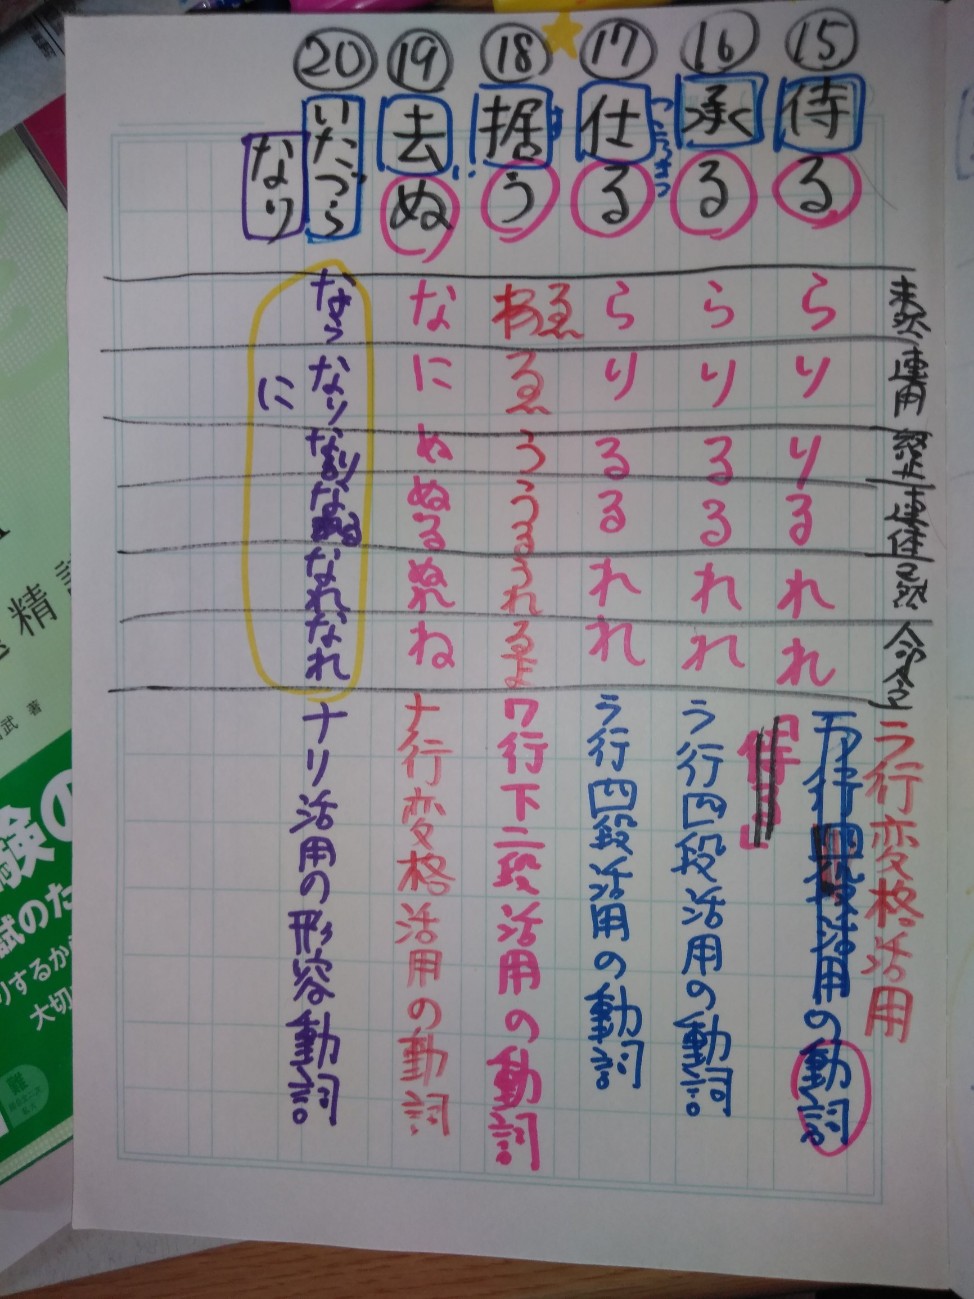 未然
連用
終止
連体
已然
命令
⑮
侍る
ら
り
り
る
れ
れ
ラ行変格活用
の動詞
「侍り」
⑯
承る
ら
り
る
る
れ
れ
ラ行四段活用の動詞
⑰
仕る
つこうまつ
ら
り
る
る
れ
れ
ラ行四段活用の動詞
⑱
据う
す
ゑ
ゑ
う
うる
うれ
ゑよ
ワ行下二段活用の動詞
⑲
去ぬ
い
な
に
ぬ
ぬる
ぬれ
ね
ナ行変格活用の動詞
⑳
いたづら
なり
なら
なり
に
なり
なる
なれ
なれ
ナリ活用の形容動詞
精
武 著
験の
試のた
りするか
大切
難